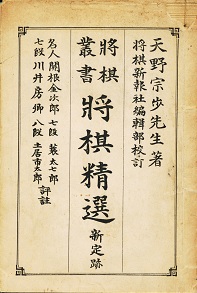 天野宗歩先生著
將棋新報社編輯部校訂
將棋
叢書
將棋精選 新定跡
名人 關根金次郎 七段 簑太七郎
七段 川井房卿 八段 土居市太郎 評註